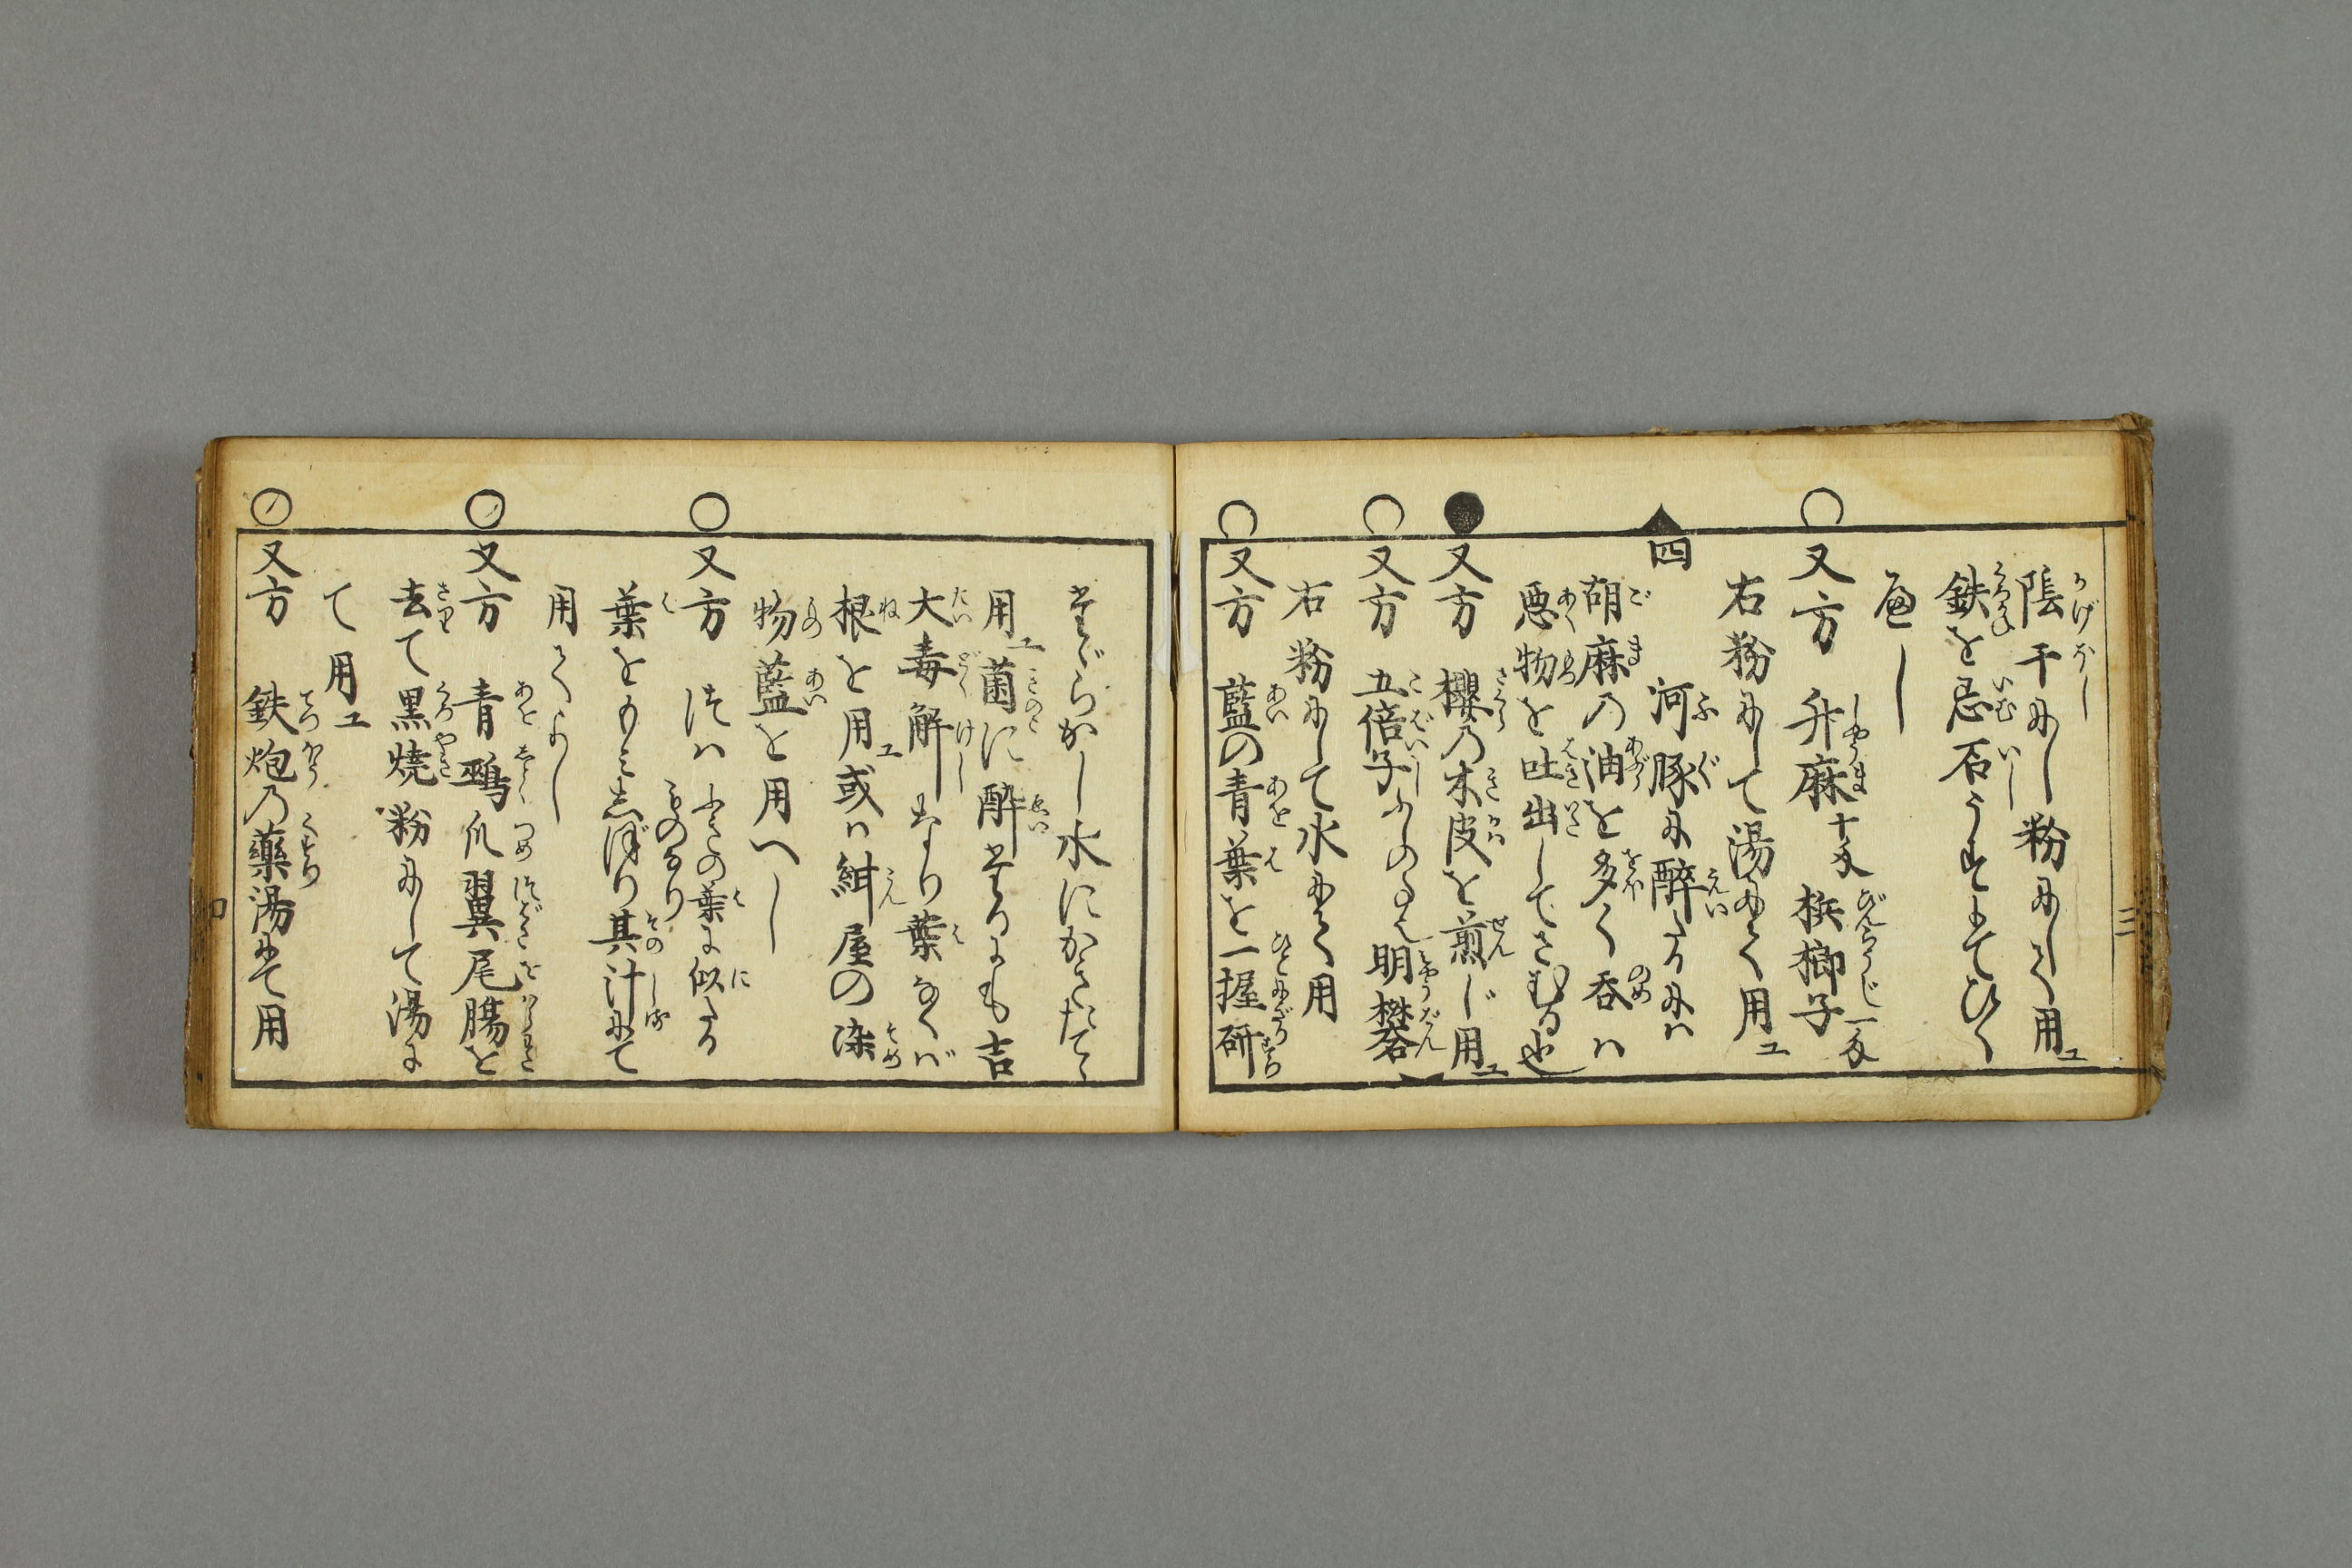 陰干にし粉にして用ユ
鉄を忌石うすにてひく
べし
又方 升麻十匁 梹榔子一匁
右粉にして湯にて用ユ
四 河豚に酔たるには
胡麻の油を多く呑ハ
悪物を吐出してさむる也
又方 櫻乃木皮を煎じ用ユ
又方 五倍子ふしのこ也 明礬
右粉にして水にて用
又方 藍の青葉を一握研
三
たゞらかし水にかきたて
用ユ菌に酔たるにも吉
大毒解しなり葉なくば
根を用ユ或ハ紺屋の染
物藍を用へし
又方 つハ ふきの葉に似たる
ものなり
葉をもみしぼり其汁にて
用てよし
又方 青鵐爪翼尾腸を
去て黒焼粉にして湯に
て用ユ
又方 鉄炮乃藥湯にて用